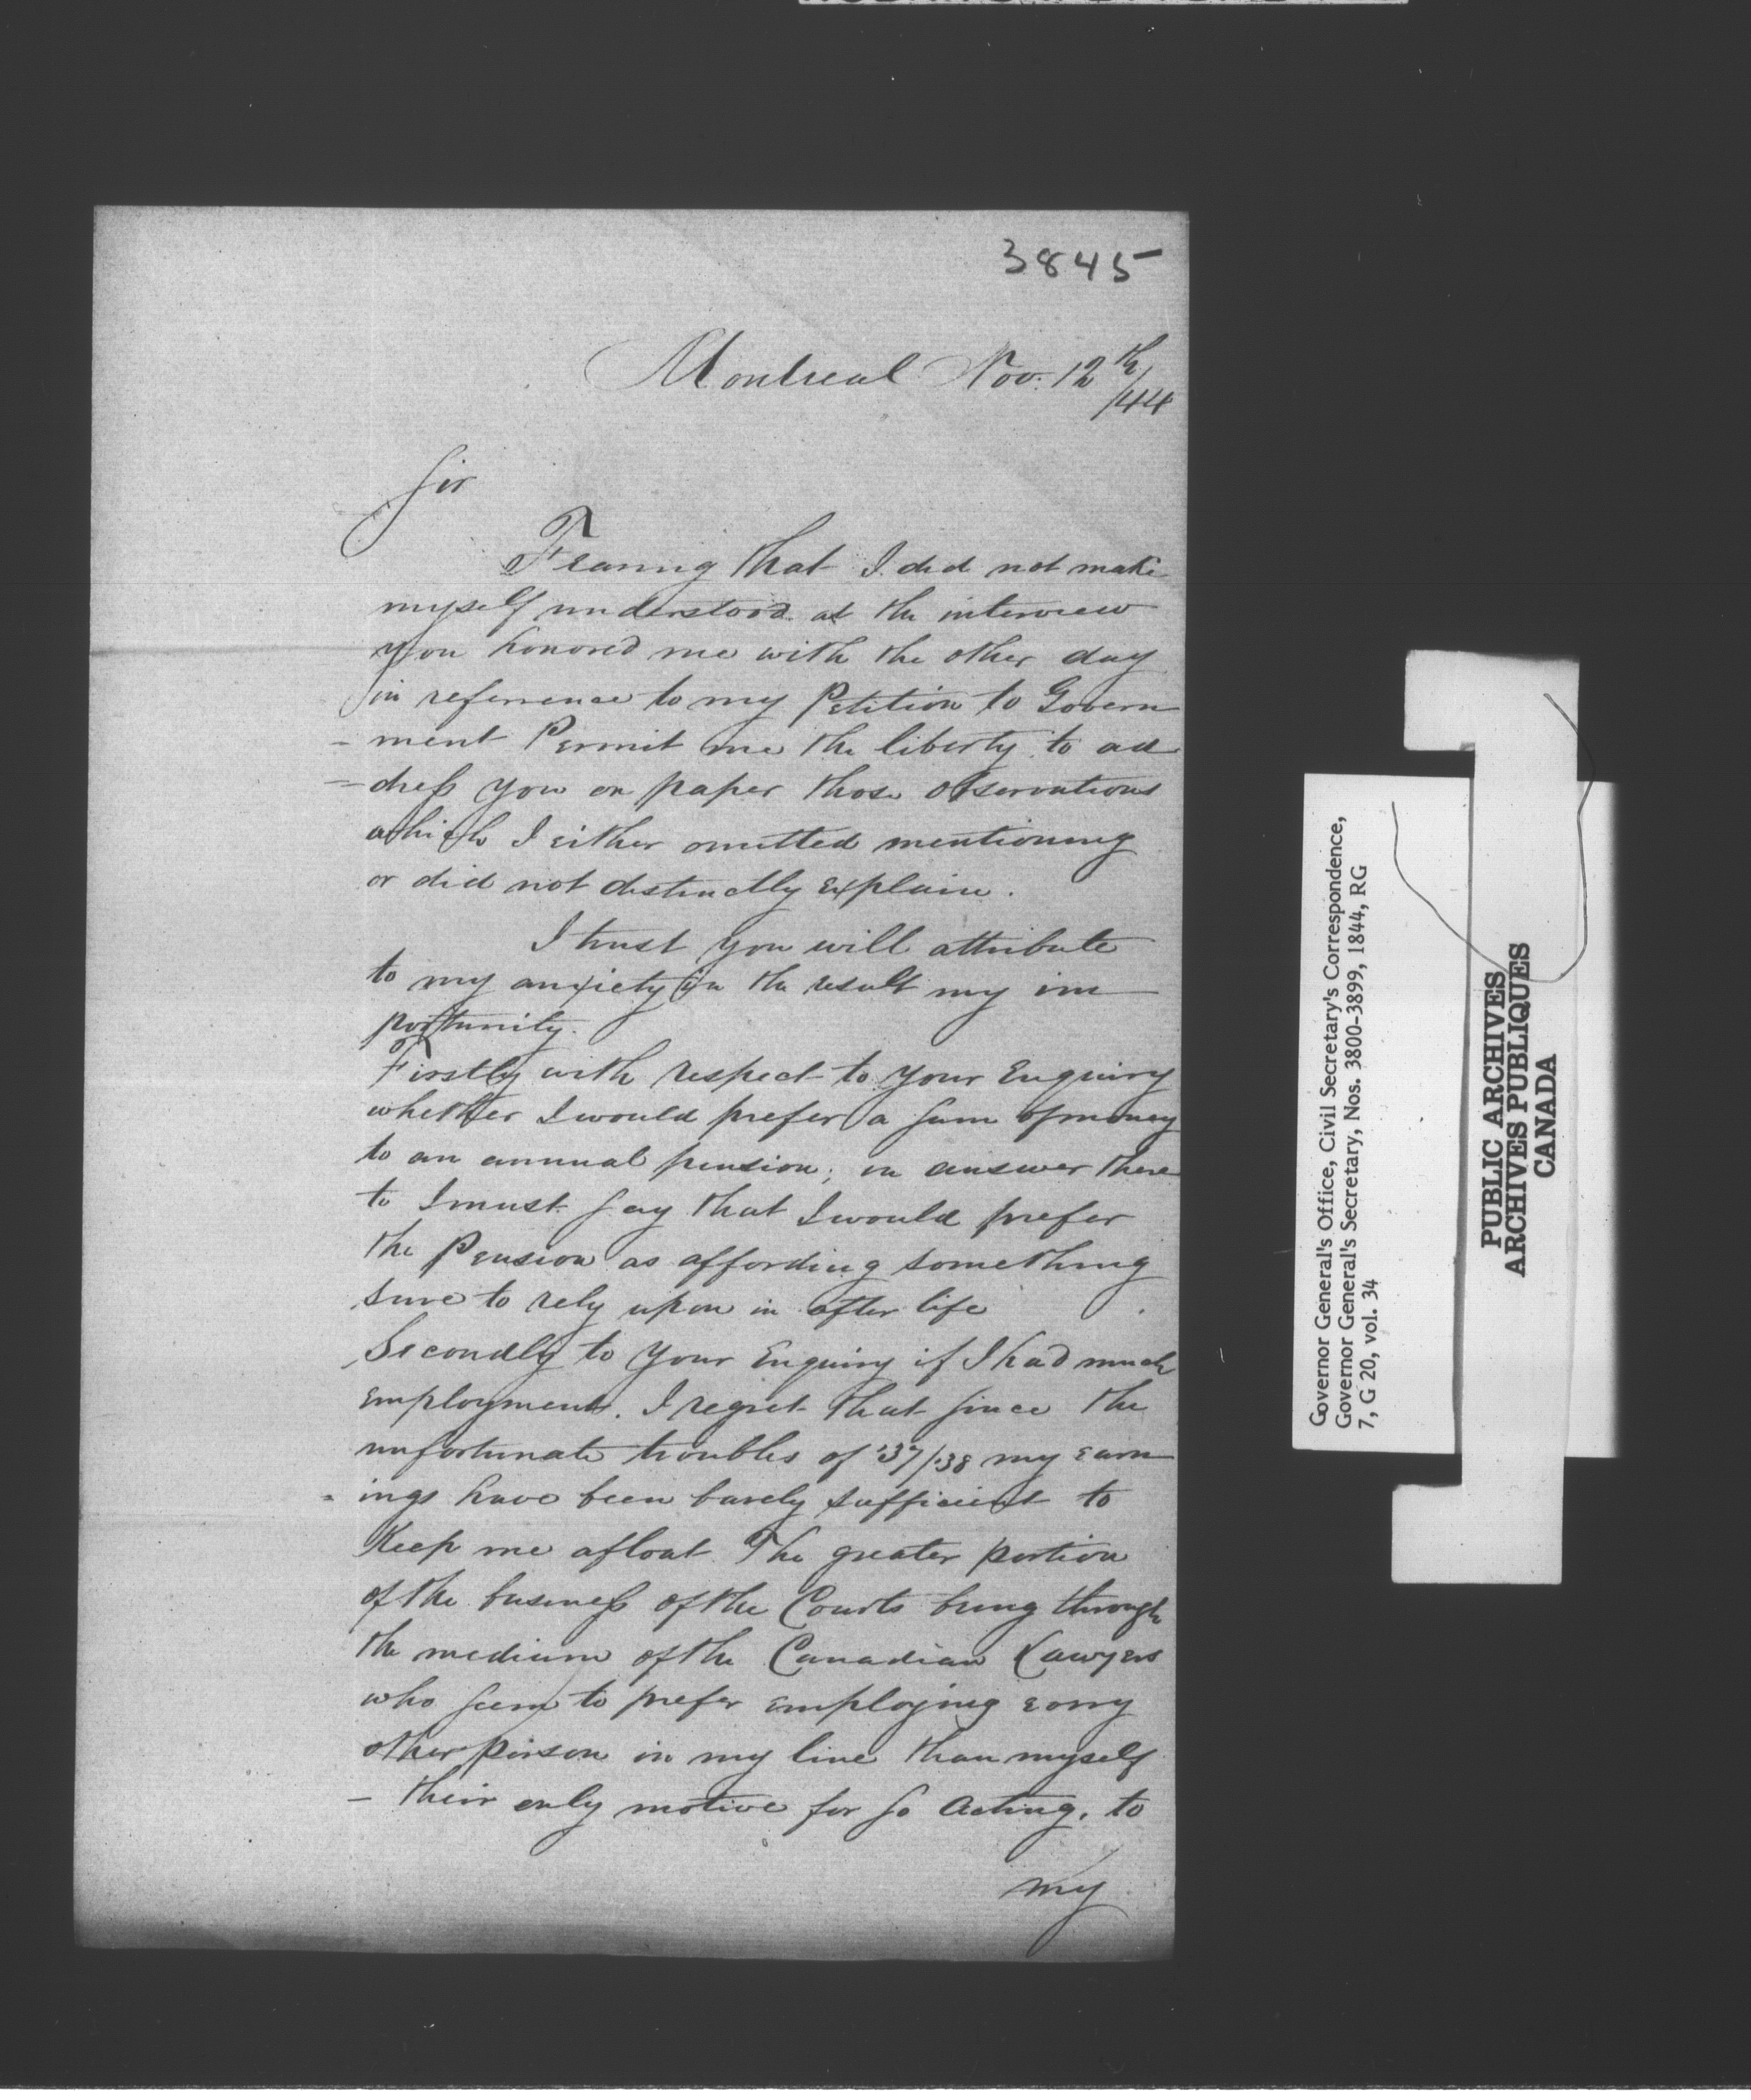 3845
Montreal Nov. 12th/44
Sir
Fearing that I did not make
myself understood at the interview
you honored me with the other day
in reference to my Petition to Govern
- ment Permit me the liberty to ad
= dress you on paper those observations
which I either omitted mentioning
or did not distinctly explain.
I trust you will attribute
to my anxiety in the result my im
portunity.
Firstly with respect to your Enquiry
whether I would prefer a sum of money
to an annual pension; in answer there
to I must say that I would prefer
the Pension as affording something
sure to rely upon in after life
Secondly to your Enquiry if I had much
employment. I regret that since the
unfortunate troubles of '37/38 my earn
- ings have been barely sufficient to
Keep me afloat The greater portion
of the business of the Courts being through
the medium of the Canadian Lawyers
who seem to prefer employing
other person in my line than myself
- their only motive for so acting, to
my
Governor General's Office, Civil Secretary's Correspondence,
Governor General's Secretary, Nos. 3800-3899, 1844, RG
7, G 20, vol. 34
PUBLIC ARCHIVES
ARCHIVES PUBLIQUES
CANADA